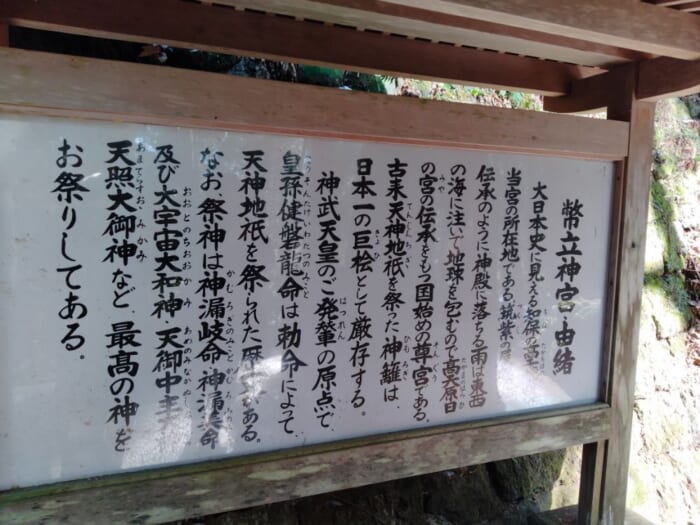 幣立神宮由緒
大日本史に見える知保の
当宮の所在地である筑紫の屋
伝承のように神殿に落ちる雨は東西
の海に注いで地球を包むので高天原日
の宮の伝承をもつ国始めの尊宮である。
古来天神地祇を祭った神籬は、
日本一の巨桧として厳存する。
神武天皇のご発輦の原点で、
皇孫健磐龍命は勅命によって
天神地祇を祭られた歴史がある。
なお、祭神は神漏岐命・神漏美命
及び大宇宙大和神・天御中主
天照大御神など、最高の神を
お祭りしてある。